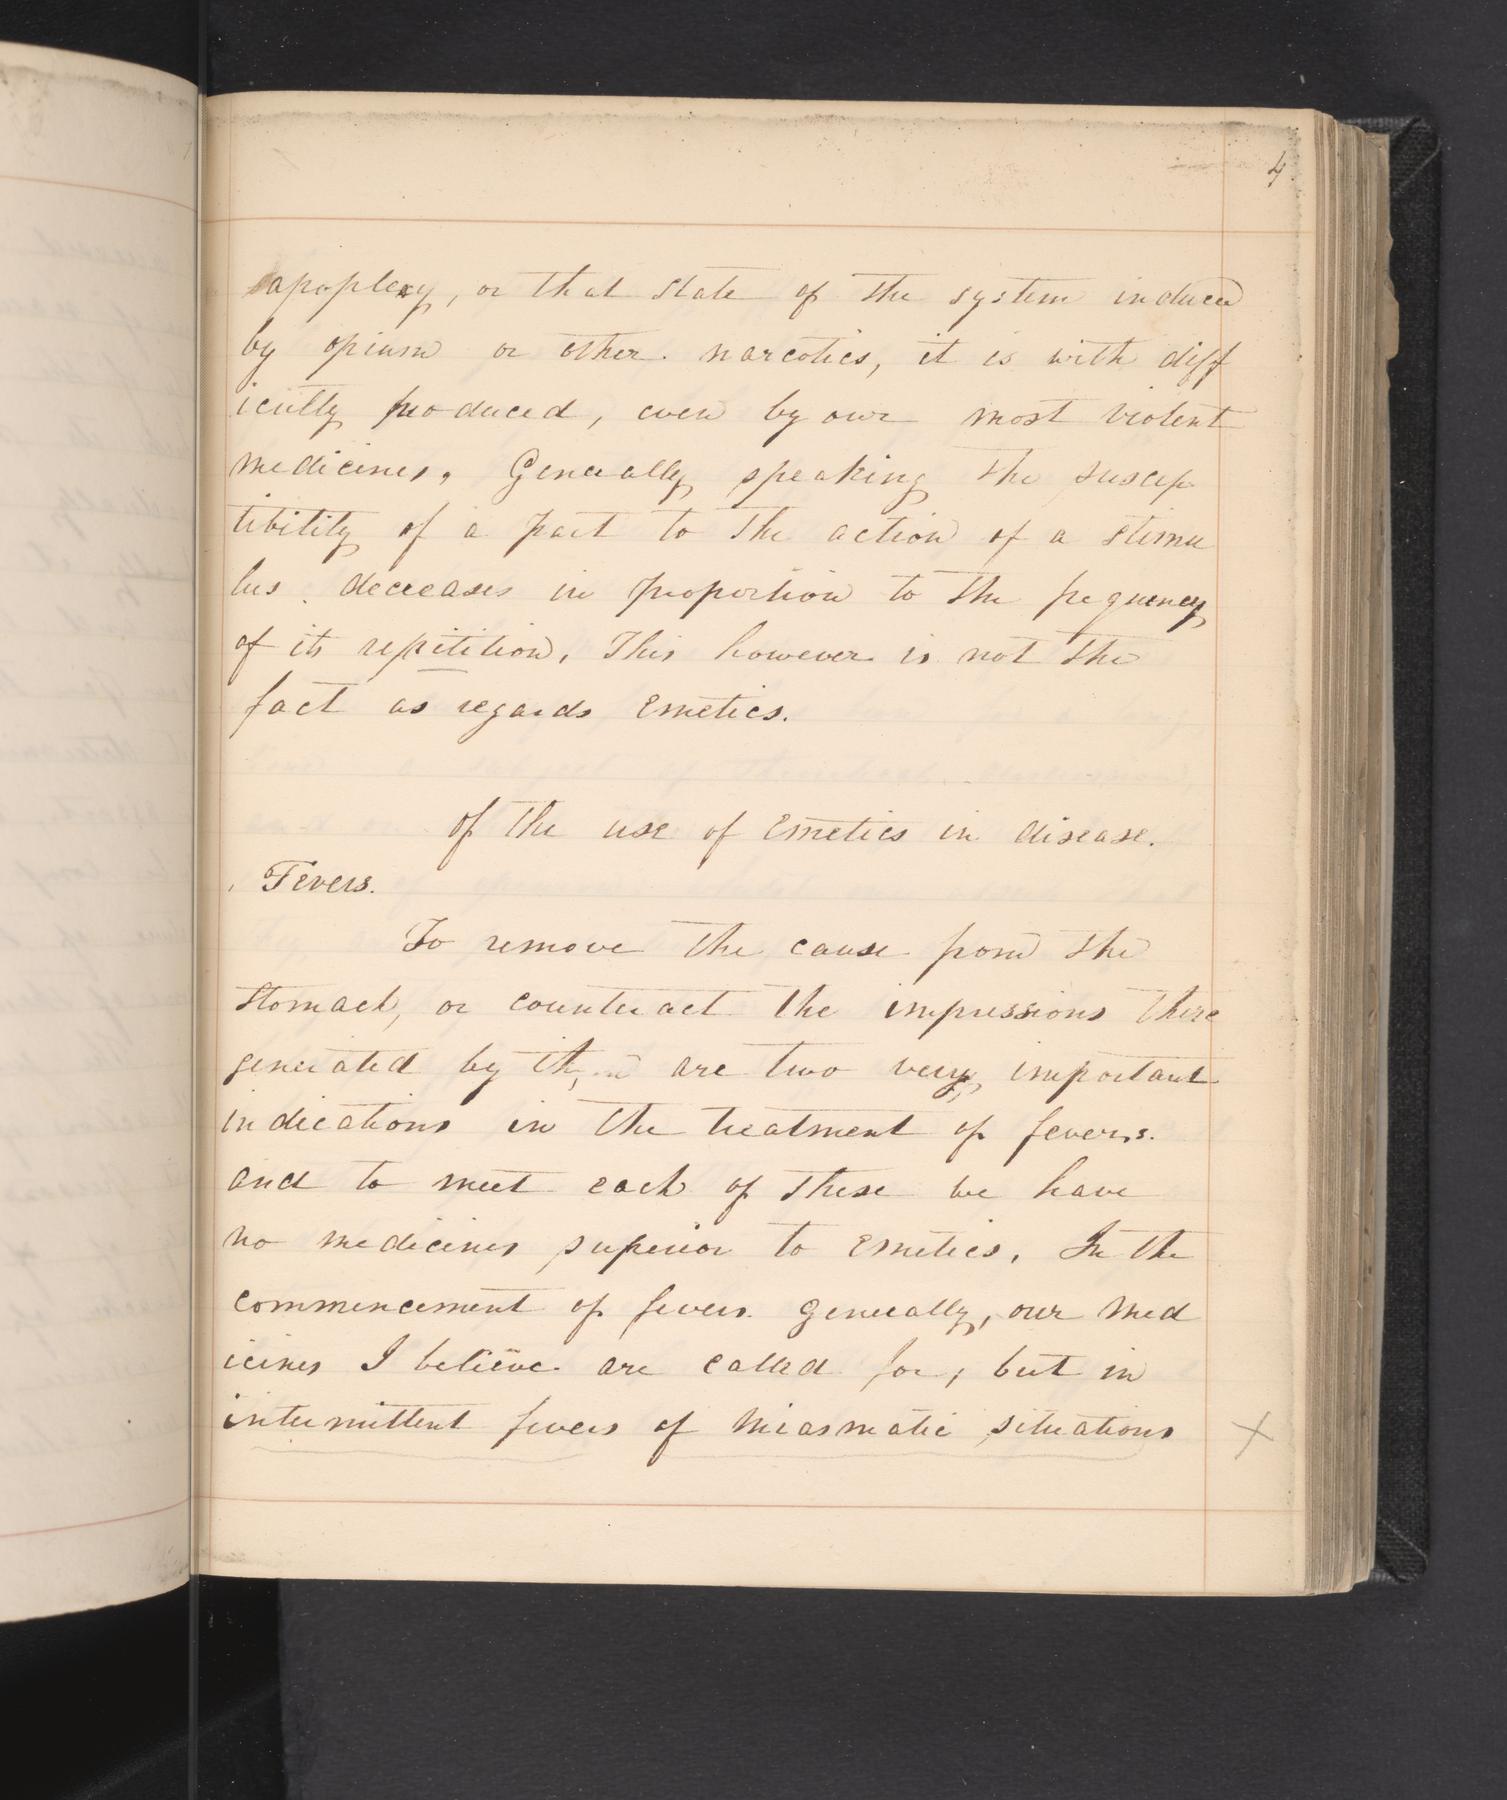 4
apoplexy, or that state of the system induced
by opium or other narcotics, it is with diff
iculty produced, even by our most violent
medicines. Generally speaking the suscep
tibility of a part to the action of a stimu
lus decreases in proportion to the frequency
of its repitition. This however is not the
fact as regards Emetics.
Of the use of Emetics in disease.
Fevers.
To remove the cause from the
stomach, or counteract the impressions there
generated by are two very important
indications in the treatment of fevers.
and to meet each of these we have
no medicines superior to Emetics. In the
commencement of fevers generally, our med
icines I believe are called for, but in
intermittent fevers of Miasmatic situations